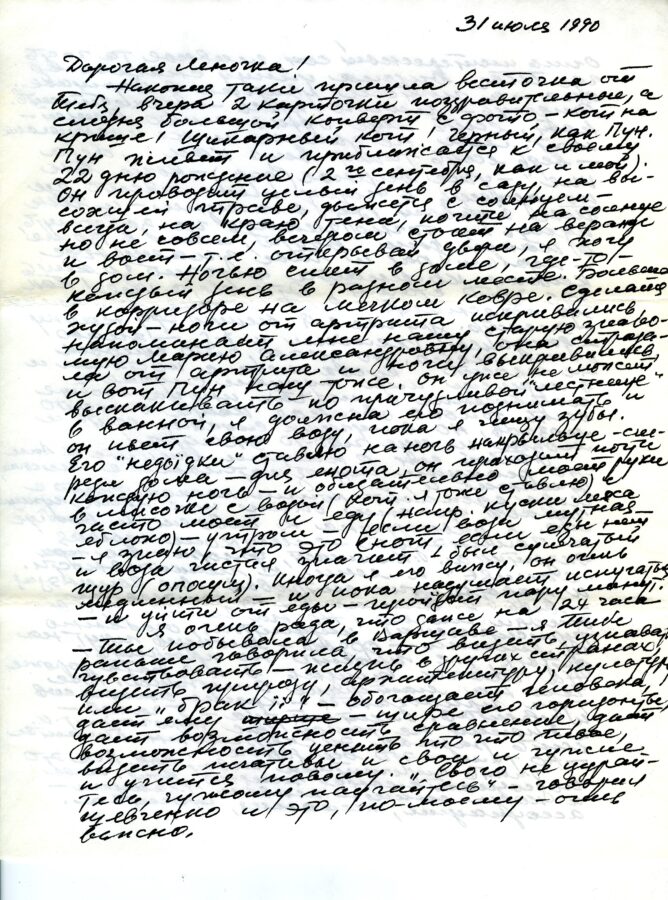 31 июля 1990
Дорогая Леночка!
Наконец таки пришла весточка от
Тебя, вчера 2 карточки поздравительные, а
сегодня большой конверт с фото – кот на
крыше! Шикарный кот! Черный, как Пун.
Пун живет и приближается к своему
22 дню рождения (2го сентября, как и мой).
Он проводит целый день в саду, на вы-
сохшей траве, движется с солнцем –
всегда, на краю тени, когите на солнце
но не совсем, вечером стоит на веранде
и воет – т.е. открывай двери, я хочу
в дом. Ночью спит в доме, где-то –
каждый день в разном месте. Больше
в корридоре на мягком ковре. Сделался
худой – ноги от артрита искривились,
напоминает мне нашу старую знако-
мую Марию Александровну, она страда-
ла от артрита и ноги выскривились,
и вот Пун наш тоже. Он уже не может
выскакивать по причудливой "лестнице"
в ванной, я должна его поднимать и
он пьет свою воду, пока я чищу зубы.
Его "недоїдки" ставлю на ночь на крыльце – спе-
реди дома – для енота, он приходит почти
каждую ночь – и обязательно моет руки
в мисочке с водой (кот. я тоже ставлю) и
чисто моет и еду (напр. куски мяса
яблоко) – утром – если вода мутная
– я знаю, что это енот, если еды нет
и вода чистая значит был сумчатый
щур (опосум). Иногда я его вижу, он очень
медленный – и пока надумает испугаться
– и уйти от еды – пройдет пару минут.
Я очень рада, что даже на 24 часа
– Ты побывала в Варшаве – я Тебе
раньше говорила, что видеть, узнавать
чувствовать – жизнь в других странах,
видеть природу, архитектуру, культуру
или "брак її" – обогащает человека,
дает ему – шире его горизонты,
дает возможность сравнение, дает
возможность ценить что-что твое,
видеть негативы и свои и чужие
и учится новому. "Свого не цурай-
тесь, чужому научайтесь" – говорил
Шевченко и это, по-моему – очень
важно.